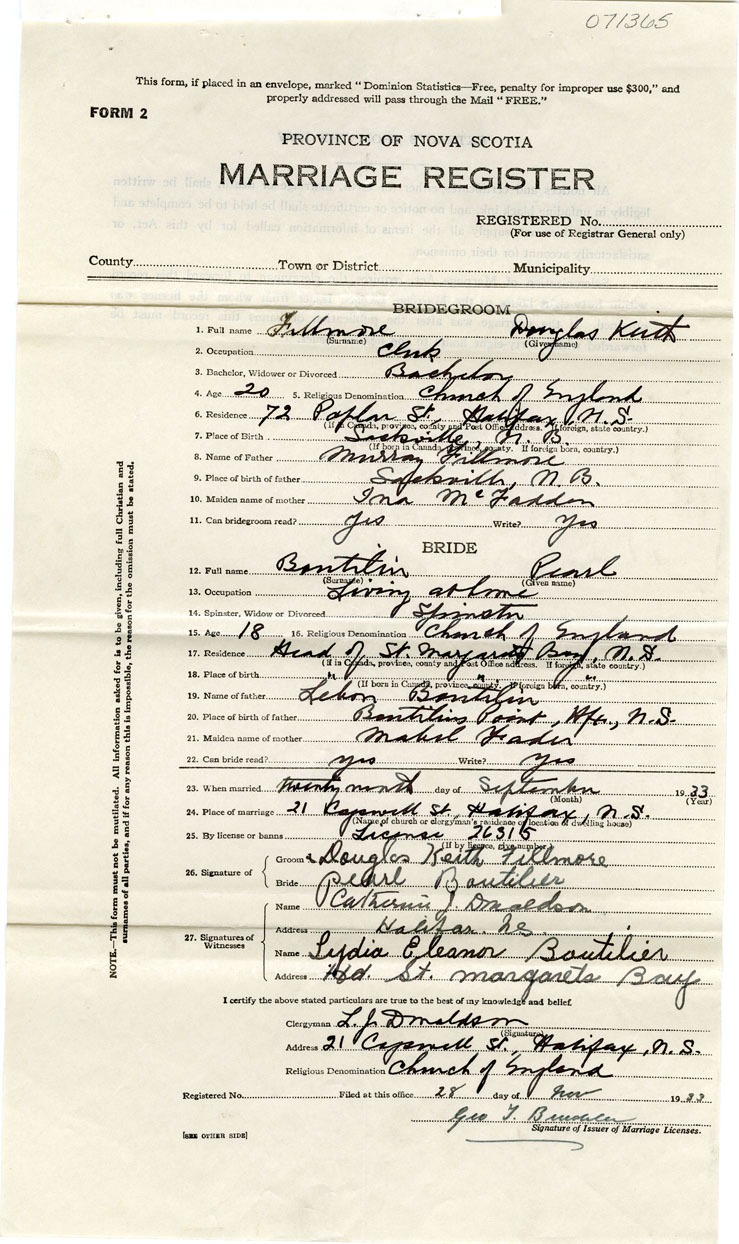 071365
This form, if placed in an envelope, marked "Dominion Statistics—Free, penalty for improper use $300," and
properly addressed will pass through the Mail "FREE."
FORM 2
PROVINCE OF NOVA SCOTIA
MARRIAGE REGISTER
REGISTERED No.
(For use of Registrar General only)
County Town or District Municipality
BRIDEGROOM
1. Full name Fillmore Douglas Keith
(Surname) (Given name)
2. Occupation Clerk
3. Bachelor, Widower or Divorced Bachelor
4. Age 20 5. Religious Denomination Church of England
6. Residence 72 Poplar St., Halifax, N.S.
(If in Canada, province, county and Post Office address. If foreign, state country.)
7. Place of Birth Sackville, N.B.
(If born in Canada, province, county. If foreign born, country.)
8. Name of Father Murray Fillmore
9. Place of birth of father Sackville, N.B.
10. Maiden name of mother Ina McFadden
11. Can bridegroom read? yes Write? yes
BRIDE
12. Full name Boutilier Pearl
(Surname) (Given name)
13. Occupation Living at home
14. Spinster, Widow or Divorced Spinster
15. Age 18 16. Religious Denomination Church of England
17. Residence Head of St. Margarets Bay, N.S.
(If in Canada, province, county and Post Office address. If foreign, state country.)
18. Place of birth " " "
(If born in Canada, province, county. If foreign born, country.)
19. Name of father Boutilier
20. Place of birth of father Boutiliers Point, Hfx., N.S.
21. Maiden name of mother Mabel Fader
22. Can bride read? yes Write? yes
23. When married twenty ninth day of September 1933
(Month) (Year)
24. Place of marriage 21 St., Halifax, N.S.
(Name of church or clergyman's residence or location of dwelling house)
25. By license or banns License 26315
(If by licence, give number)
26. Signature of
Groom Douglas Keith Fillmore
Bride Pearl Boutilier
27. Signatures of Witnesses
Name Catherine J. Donaldson
Address Halifax. NS
Name Lydia Eleanor Boutilier
Address Hd. St. margarets Bay
I certify the above stated particulars are true to the best of my knowledge and belief.
Clergyman L.J. Donaldson
(Signature)
Address 21 St., Halifax, N.S.
Religious Denomination Church of England
Registered No. Filed at this office 28 day of Nov 1933
Geo
Signature of Issuer of Marriage Licenses.
[SEE OTHER SIDE]
NOTE.—This form must not be mutilated. All information asked for is to be given, including full Christian and
surnames of all parties, and if for any reason this is impossible, the reason for the omission must be stated.